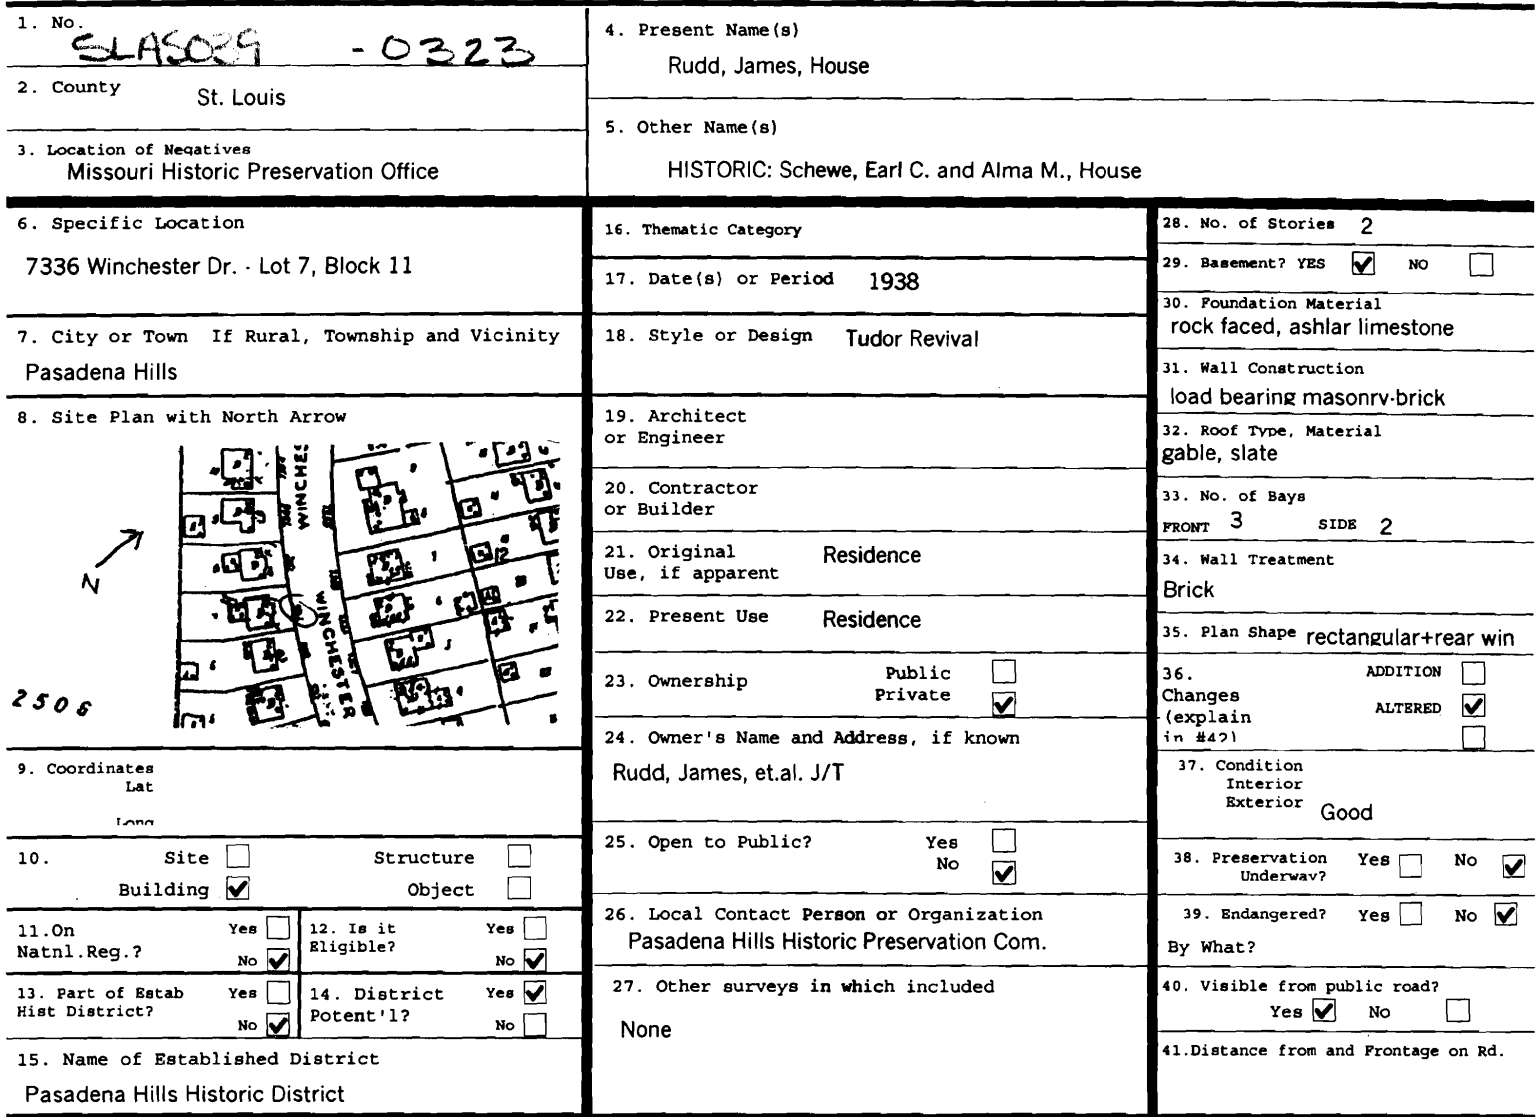 1. No.
SLAS039 -0323
2. County St. Louis
3. Location of Negatives
Missouri Historic Preservation Office
4. Present Name(s)
Rudd, James, House
5. Other Name(s)
HISTORIC: Schewe, Earl C. and Alma M., House
6. Specific Location
7336 Winchester Dr. - Lot 7, Block 11
7. City or Town If Rural, Township and Vicinity
Pasadena Hills
8. Site Plan with North Arrow
N
WINCHES
WINCHESTER
2506
9. Coordinates
Lat
Long
10. Site Structure
Building Object
11.On Yes
Natnl.Reg.? No
12. Is it Yes
Eligible? No
13. Part of Estab Yes
Hist District? No
14. District Yes
Potent'l? No
15. Name of Established District
Pasadena Hills Historic District
16. Thematic Category
17. Date(s) or Period 1938
18. Style or Design Tudor Revival
19. Architect
or Engineer
20. Contractor
or Builder
21. Original Residence
Use, if apparent
22. Present Use Residence
23. Ownership Public
Private
24. Owner's Name and Address, if known
Rudd, James, et.al. J/T
25. Open to Public? Yes
No
26. Local Contact Person or Organization
Pasadena Hills Historic Preservation Com.
27. Other surveys in which included
None
28. No. of Stories 2
29. Basement? YES NO
30. Foundation Material
rock faced, ashlar limestone
31. Wall Construction
load bearing masonry-brick
32. Roof Type, Material
gable, slate
33. No. of Bays
FRONT 3 SIDE 2
34. Wall Treatment
Brick
35. Plan Shape rectangular+rear win
36. ADDITION
Changes
(explain ALTERED
in #42)
37. Condition
Interior
Exterior Good
38. Preservation Yes No
Underway?
39. Endangered? Yes No
By What?
40. Visible from public road?
Yes No
41.Distance from and Frontage on Rd.